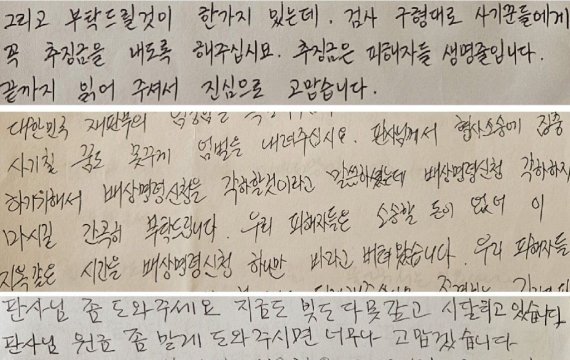 그리고 부탁드릴것이 한가지 있는데. 검사 구형대로 사기꾼들에게
꼭 추징금을 내도록 해주십시요. 추징금은 피해자들 생명줄입니다.
끝까지 읽어 주셔서 진심으로 고맙습니다.
대한민국 재판부의
사기칠 꿈도 못꾸게 엄벌을 내려주십시요. 판사님께서 형사소송에 집중
하기위해서 배상명령신청을 각하할것이라고 말씀하셨는데 배상명령신청 각하하지
마시길 간곡히 부탁드립니다. 우리 피해자들은 소송할 돈이 없어 이
지옥같은 시간을 배상명령신청 하나만 바라고 버텨왔습니다. 우리 피해자들
판사님 좀 도와주세요 지금도 빚도 다 못갚고 시달리고 있습니다
판사님 원금 좀 받게 도와주시면 너무나 고맙겠습니다